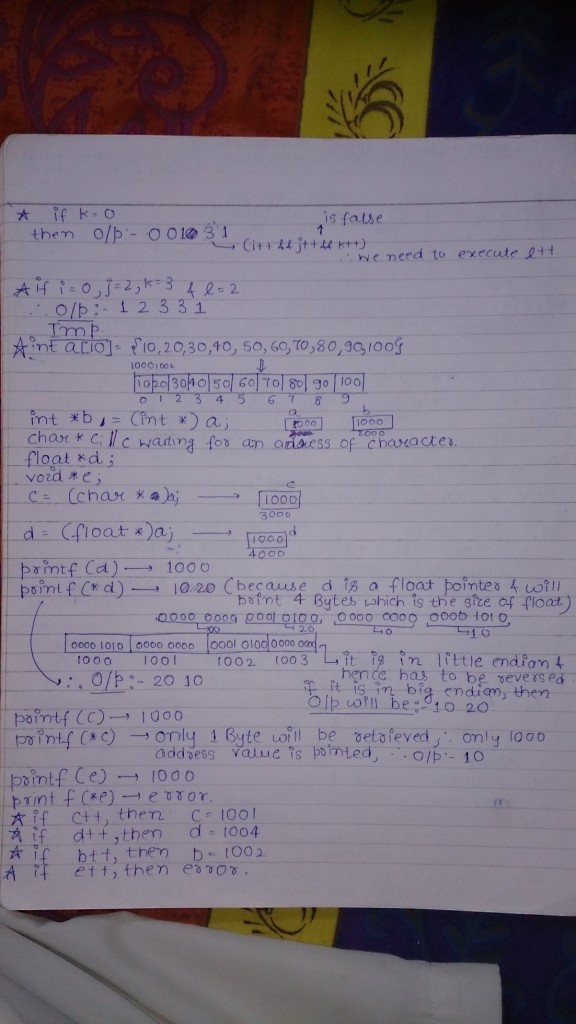 ☆ if k=0
is false
then O/p:- 0 0 1 0 3 1
(i++ && j++ && k++)
∴ we need to execute l++
☆ if i=0, j=2, k=3 & l=2
∴ O/p:- 1 2 3 3 1
Imp.
☆ int a[10]= {10,20,30,40, 50,60,70,80,90,100}
1000 1002
10 20 30 40 50 60 70 80 90 100
0 1 2 3 4 5 6 7 8 9
a b
int *b = (int *) a; 1000 1000
char * c; // c waiting for an address of character. 2000
float *d;
void *e;
c
c = (char *) b; → 1000
3000
d = (float *)a; → 1000 d
4000
printf (d) → 1000
printf (*d) → 10 20 (because d is a float pointer & will
print 4 Bytes which is the size of float)
0000 0000 0001 0100, 0000 0000 0000 1010
20 0 10
0000 1010 0000 0000 0001 0100 0000 0000
1000 1001 1002 1003 it is in little endian &
hence has to be reversed
∴ O/P:- 20 10 If it is in big endian, then
O/p will be:- 10 20
printf (c) → 1000
printf (*c) → only 1 Byte will be retrieved, ∴ only 1000
address value is printed, ∴ O/p:- 10
printf (e) → 1000
print f (*e) → error.
☆ if c++, then c = 1001
☆ if d++, then d = 1004
☆ if b++, then b = 1002
☆ if e++, then error.